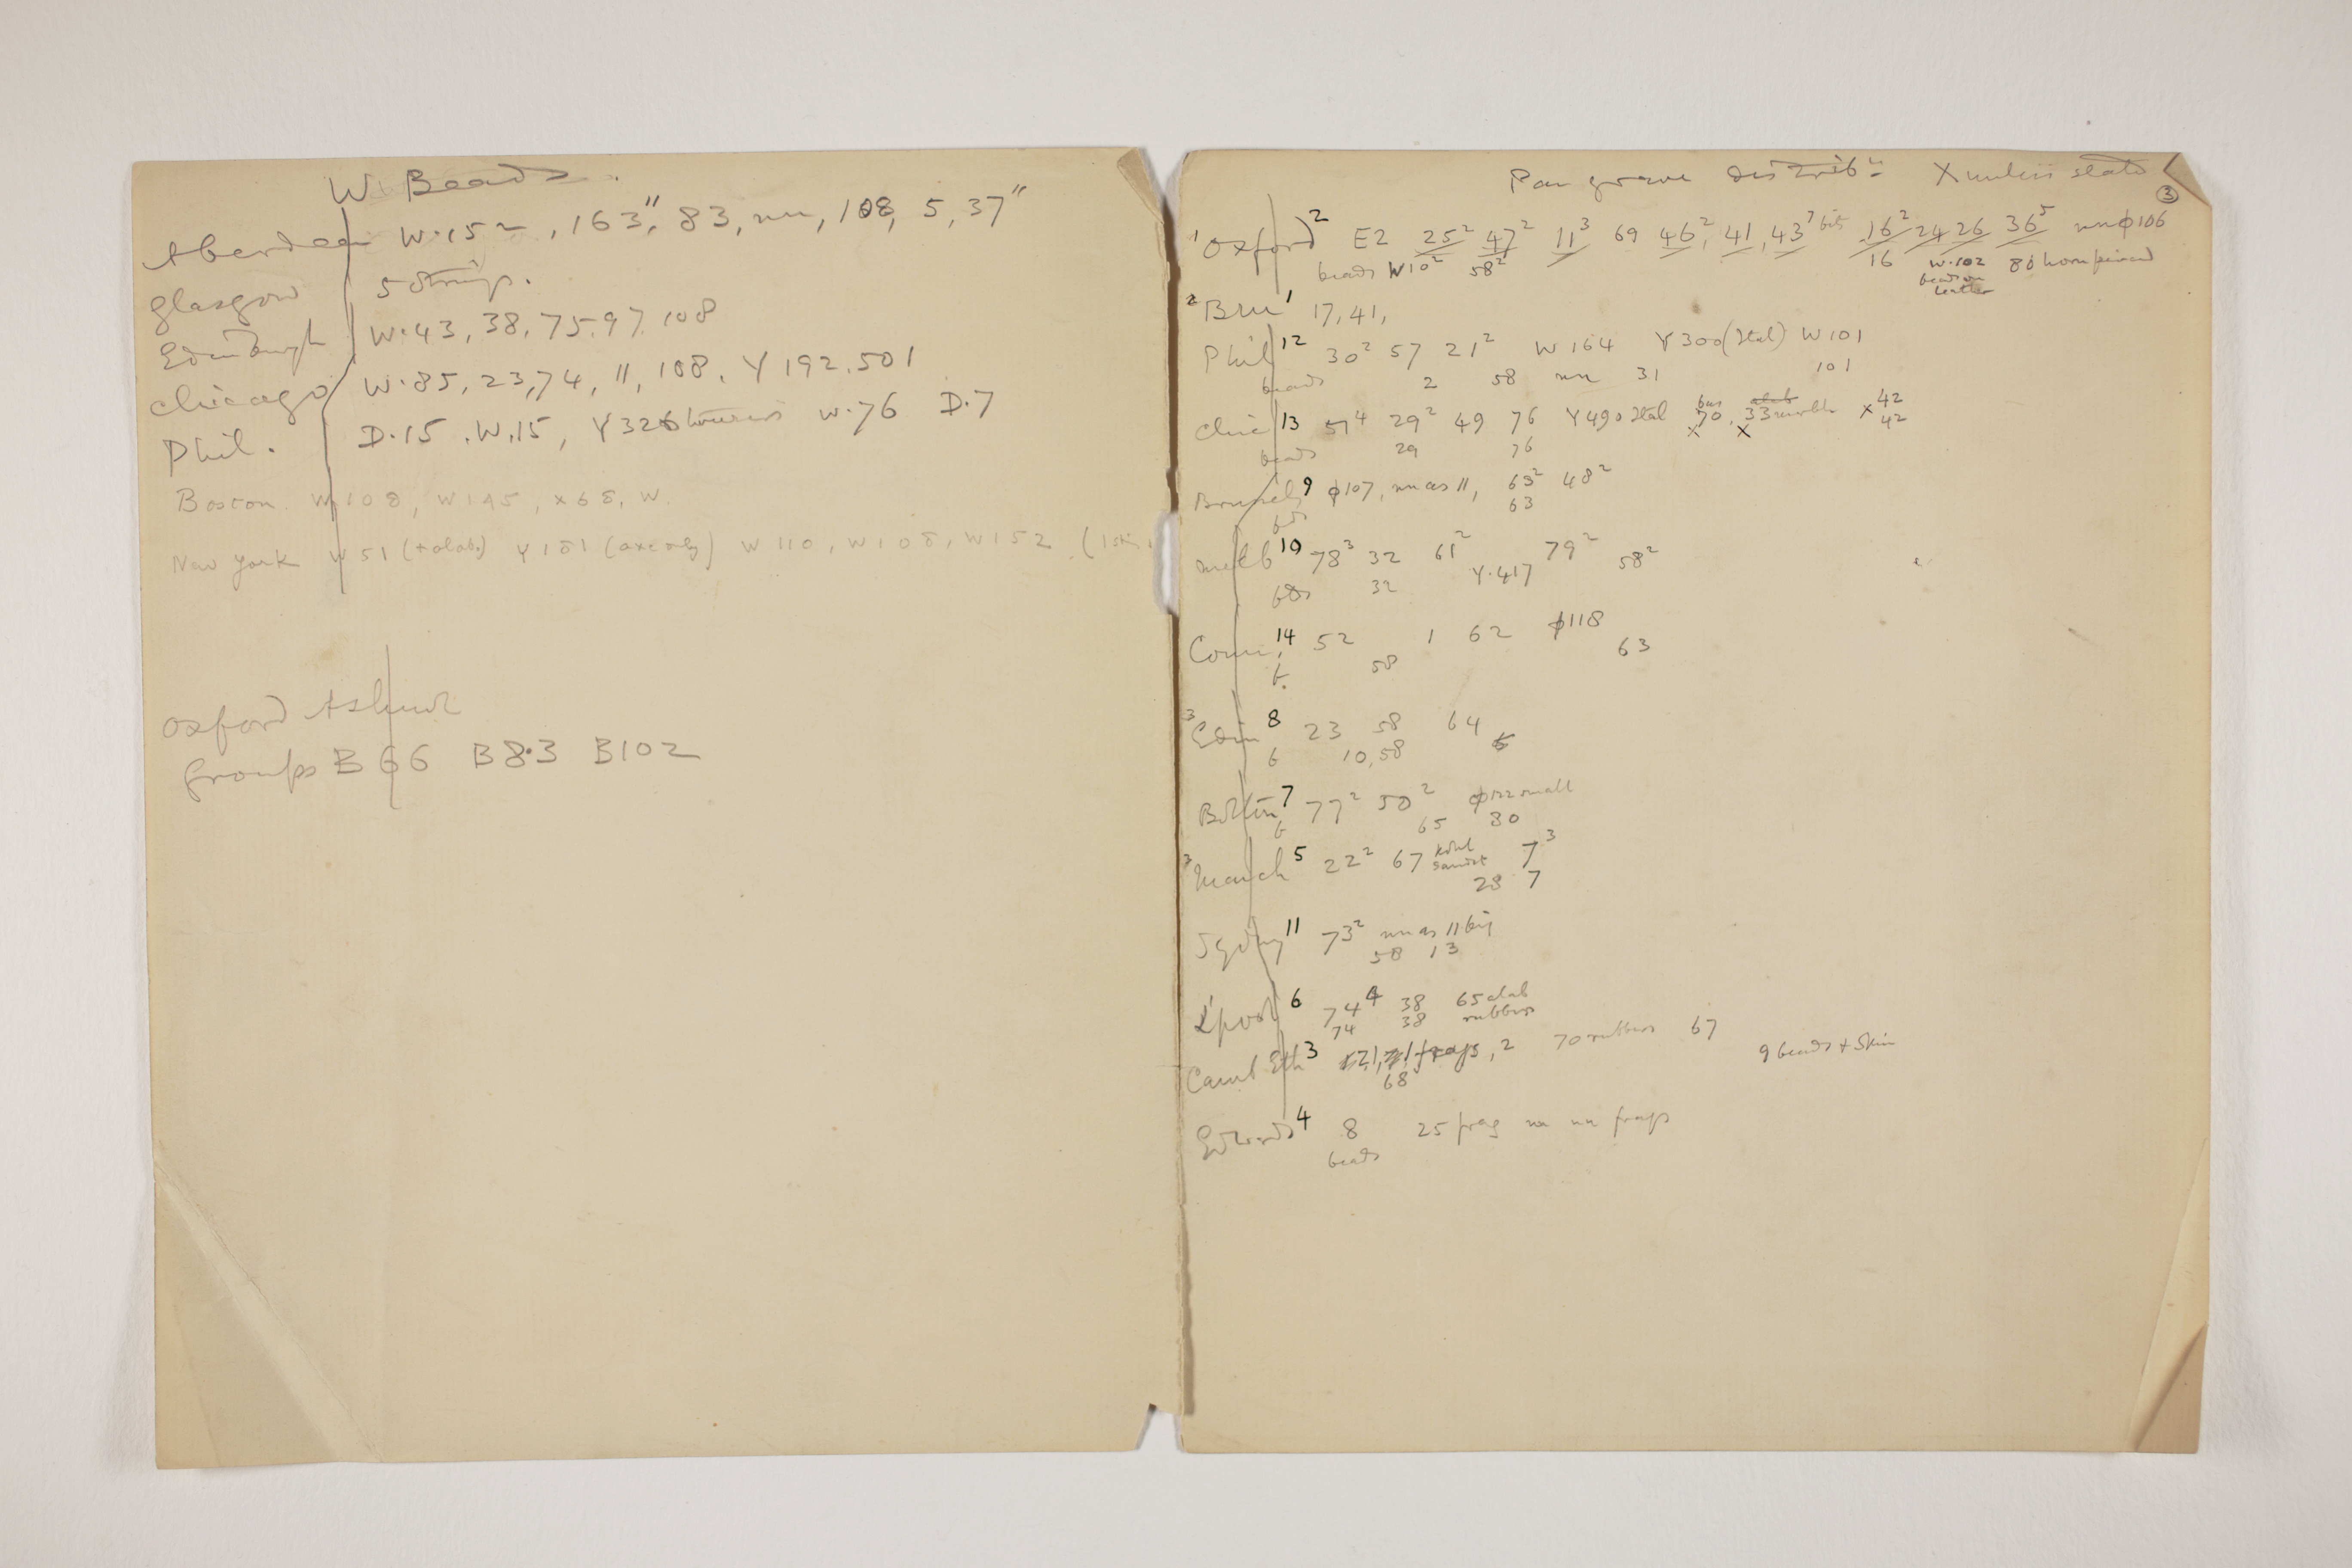 W. Beads.
Aberdeen W.152, 163", 83, nn, 108, 5, 37"
Glasgow 5 strings.
Edinburgh W.43, 38, 75. 97. 108
Chicago W.85, 23, 74, 11, 108. Y 192. 501
Phil. D.15. W.15, Y326 W.76 D.7
Boston. W108, W145, X68, W.
New York W51 (+alab.) Y181 (axe only) W110, W108, W152. (1 skin
Oxford Ashmol
Groups B66 B8.3 B102
Pan grave distribn X unless stated
3
1 Oxford 2 E2 25² 47² 11³ 69 46², 41, 43⁷ bits 16² 24 26 36⁵ nn φ106
beads W10² 58² 16 W.102 80 horn
beads on
leather
2 1 17, 41,
Phil 12 30² 57 21² W164 Y300 (Stal) W101
beads 2 58 nn 31 101
Chic 13 51⁴ 29² 49 76 Y490 Stal 70. 33 marble X 42
beads 29 76 X X 42
Brussels 9 φ107, nn as 11, 63² 48²
bds 63
Melb 10 78³ 32 61² 79² 58²
bds 32 Y.417
14 52 1 62 φ118
b. 58 63
3 Edin 8 23 58 64
b 10, 58
Bolton 7 77² 50² φ122 small
b 65 80
3 Manch 5 22² 67 Kohl 7³
28 7
Sydney 11 73² nn as 11 big
58 13
L'pool 6 74⁴ 38 65 alab
74 38 rubbers
Camb Eth 3 frags, 2 70 rubbers 67
68 9 beads + skin
Edwards 4 8 25 frag nn nn frags
beads